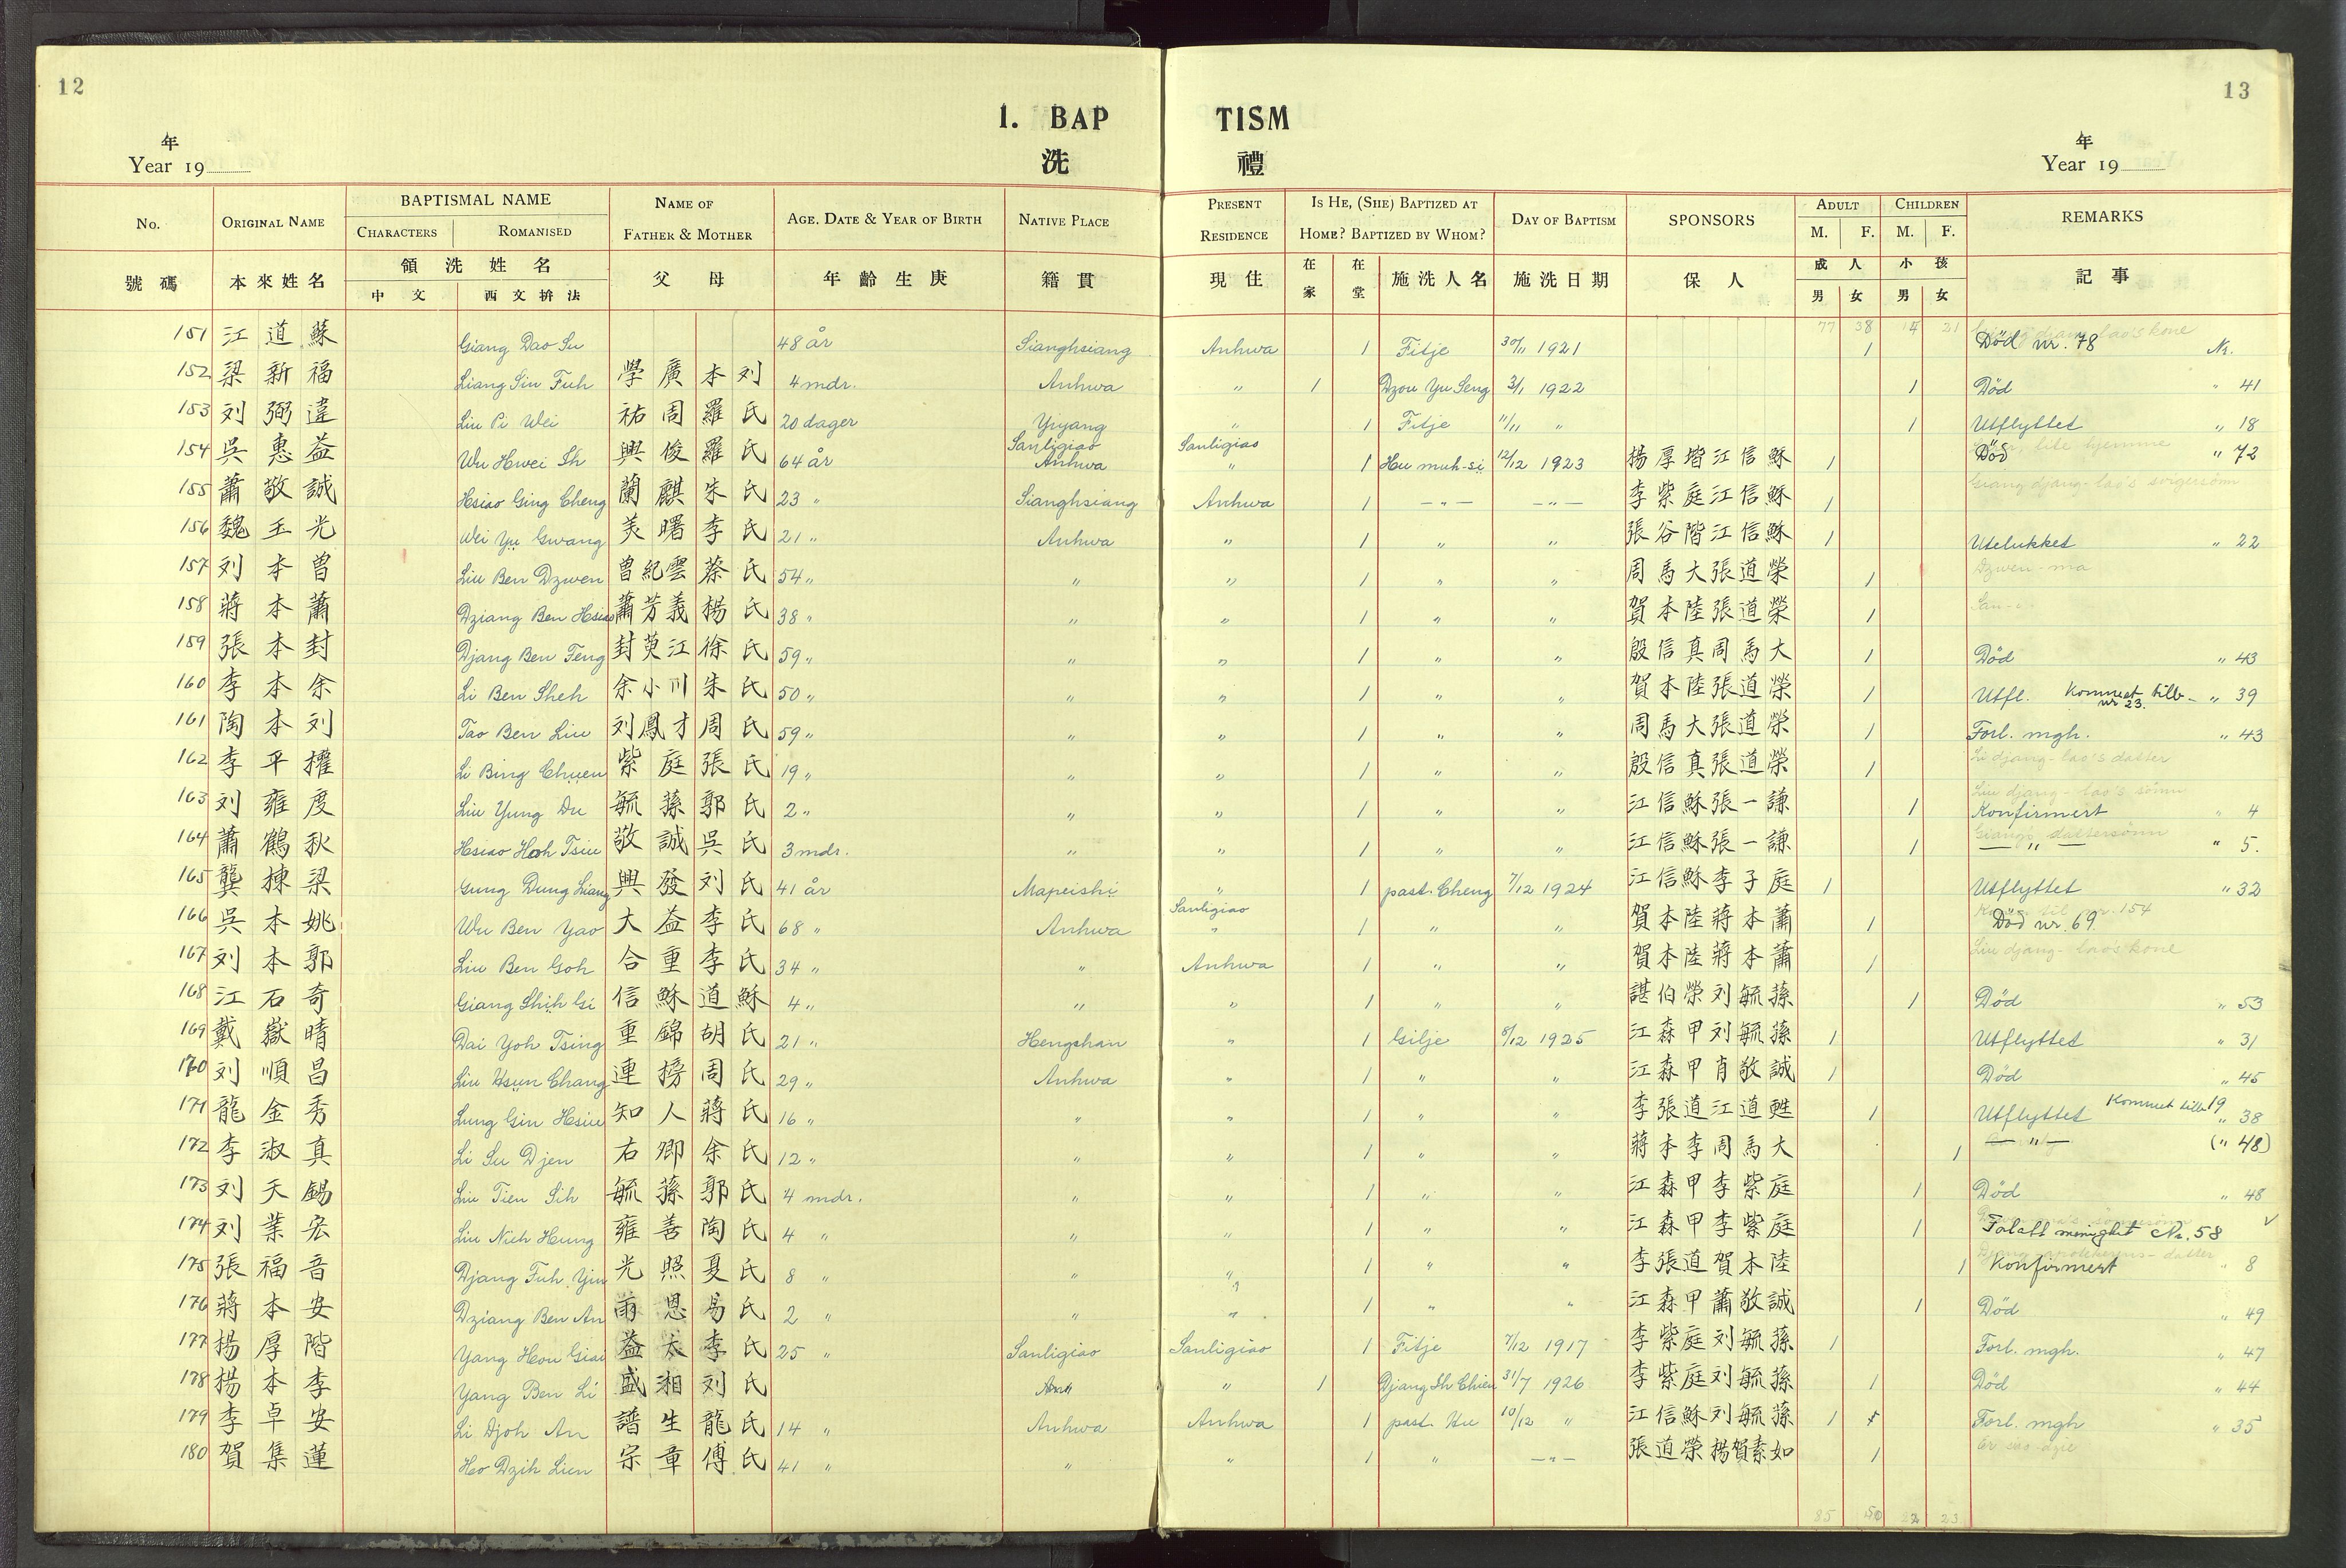 12
13
1. BAP TISM
洗 禮
年
Year 19
年
Year 19
No. ORIGINAL NAME BAPTISMAL NAME NAME OF FATHER & MOTHER AGE. DATE & YEAR OF BIRTH NATIVE PLACE PRESENT RESIDENCE IS HE, (SHE) BAPTIZED AT HOME? BAPTIZED BY WHOM? DAY OF BAPTISM SPONSORS ADULT CHILDREN REMARKS
CHARACTERS ROMANISED M. F. M. F.
號碼 本來姓名 領洗姓名 父母 年齡生庚 籍貫 現住 在家 在堂 施洗人名 施洗日期 保人 成人 小孩 記事
中文 西文拚法 男 女 男 女
77 38 14 21
151 江道蘇 Giang Dao Su 48 år Sianghsiang Anhwa 1 Fitje 30/11 1921 1 Död nr. 78 Nr.
152 梁新福 Liang Sin Fuh 學廣本刘 4 mdr. Anhwa " 1 Dzou Yu Seng 3/1 1922 1 Död " 41
153 刘弼違 Liu Pi Wei 祐周羅氏 20 dager Yiyang " 1 Fitje 11/11 " 1 Utflyttet " 18
154 吳惠益 Wu Hwei Ih 興俊羅氏 64 år Sanligiao Anhwa Sanligiao " 1 Hu muh-si 12/12 1923 楊厚堦江信穌 1 Död " 72
155 蕭敬誠 Hsiao Ging Cheng 蘭麒朱氏 23 " Sianghsiang Anhwa 1 — " — — " — 李紫庭江信穌 1 Giang djang-lao's svigersönn
156 魏玉光 Wei Yu Gwang 美曙李氏 21 " Anhwa " 1 " " 張谷階江信穌 1 Utelukket " 22
157 刘本曾 Liu Ben Dzwen 曾紀雲蔡氏 54 " " " 1 " " 周馬大張道榮 1 Dzwen-ma
158 蔣本蕭 Dziang Ben Hsiao 蕭芳義楊氏 38 " " " 1 " " 賀本陸張道榮 1
159 張本封 Djang Ben Feng 封萸江徐氏 59 " " " 1 " " 殷信真周馬大 1 Död " 43
160 李本余 Li Ben Sheh 余小川朱氏 50 " " " 1 " " 賀本陸張道榮 1 Utfl. Kommet tilb- nr 23. " 39
161 陶本刘 Tao Ben Liu 刘鳳才周氏 59 " " " 1 " " 周馬大張道榮 1 Forl. mgh. " 43
162 李平權 Li Bing Chuen 紫庭張氏 19 " " " 1 " " 殷信真張道榮 1 Li djang-lao's datter
163 刘雍度 Liu Yung Du 毓蓀郭氏 2 " " " 1 " " 江信穌張一謙 1 Liu djang-lao's sönn Konfirmert " 4
164 蕭鶴秋 Hsiao Hoh Tsiu 敬誠吳氏 3 mdr. " " 1 " " 江信穌張一謙 1 Giang's dattersönn — " — " 5.
165 龔棟梁 Gung Dung Liang 興發刘氏 41 år Mapeishi " 1 past. Cheng 7/12 1924 江信穌李子庭 1 Utflyttet " 32
166 吳本姚 Wu Ben Yao 大益李氏 68 " Anhwa Sanligiao " 1 " " 賀本陸蔣本蕭 1 Död nr. 69
167 刘本郭 Liu Ben Goh 合重李氏 34 " " Anhwa 1 " " 賀本陸蔣本蕭 1 Liu djang-lao's kone
168 江石奇 Giang Shih Gi 信穌道穌 4 " " " 1 " " 諶伯榮刘毓蓀 1 Död " 53
169 戴嶽晴 Dai Yoh Tsing 重錦胡氏 21 " Hengshan " 1 Gilje 8/12 1925 江森甲刘毓蓀 1 Utflyttet " 31
170 刘順昌 Liu Hsun Chang 連榜周氏 29 " Anhwa " 1 " " 江森甲肖敬誠 1 Död " 45
171 龍金秀 Lung Gin Hsiu 知人蔣氏 16 " " " 1 " " 李張道江道甦 1 Utflyttet Kommet tilb 19 " 38
172 李淑真 Li Su Djen 右卿余氏 12 " " " 1 " " 蔣本李周馬大 1 — " — (" 48)
173 刘天錫 Liu Tien Sih 毓蓀郭氏 4 mdr. " " 1 " " 江森甲李紫庭 1 Död " 48
174 刘業宏 Liu Nieh Hung 雍善陶氏 4 " " " 1 " " 江森甲李紫庭 1 Forlatt menighet Nr. 58
175 張福音 Djang Fuh Yin 光照夏氏 8 " " " 1 " " 李張道賀本陸 1 Konfirmert " 8
176 蔣本安 Dziang Ben An 雨恩易氏 2 " " " 1 " " 江森甲蕭敬誠 1 Död " 49
177 楊厚階 Yang Hou Giai 益太李氏 25 " Sanligiao Sanligiao 1 Fitje 7/12 1917 李紫庭刘毓蓀 1 Forl. mgh. " 47
178 楊本李 Yang Ben Li 盛湘刘氏 " 1 Djang Ih Chien 31/7 1926 李紫庭刘毓蓀 1 Död " 44
179 李卓安 Li Djoh An 譜生龍氏 14 " Anhwa Anhwa 1 past. Hu 10/12 " 江信穌刘毓蓀 1 Forl. mgh " 35
180 賀集蓮 Ho Dzih Lien 宗章傅氏 41 " " " 1 " — " — 張道榮楊賀素如 1
85 50 22 23